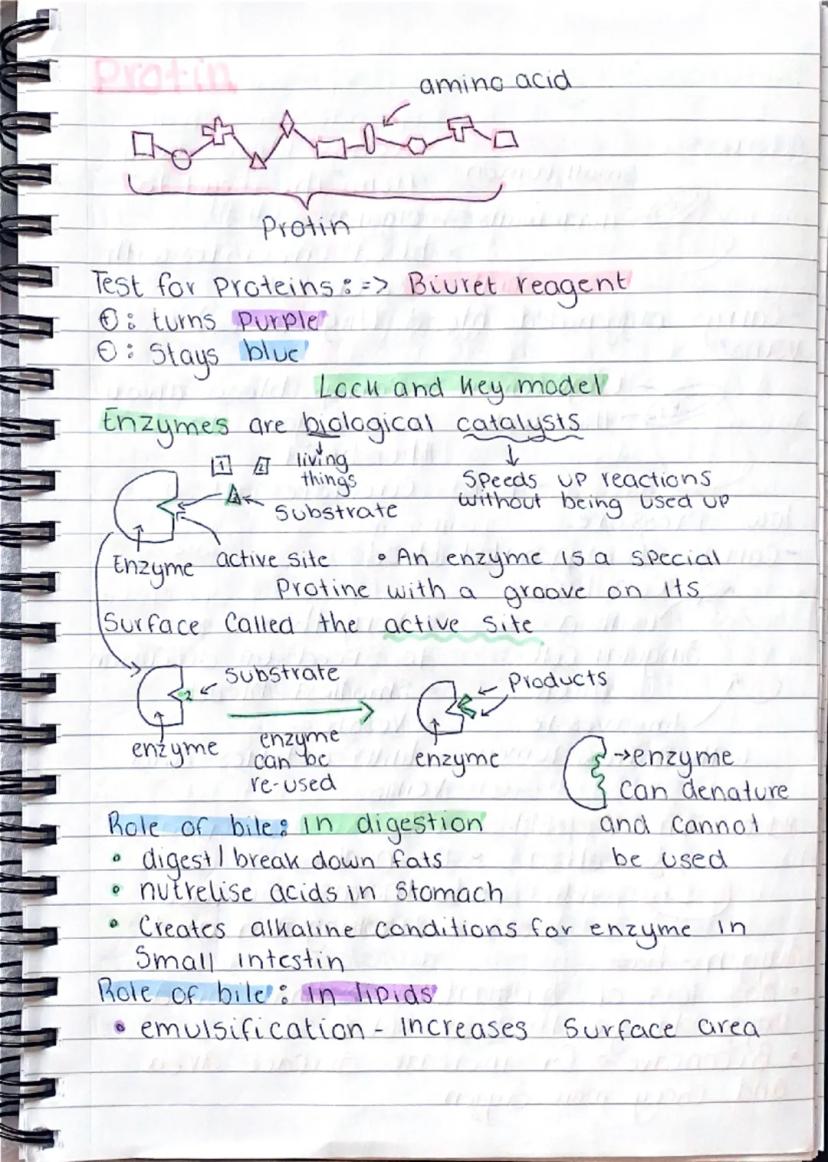 Protin
amino acid
Protin
Test for Proteins: => Biuret reagent
⊕: turns Purple
⊖: Stays blue
Lock and key model
Enzymes are biological catalysts
living things
Speeds up reactions without being used up
Substrate
Enzyme
active site
• An enzyme is a special
Protine with a groove on its
Surface Called the active Site
Substrate
Products
enzyme
enzyme
can be
re-used
enzyme
→enzyme
can denature
and cannot
be used
Role of bile: in digestion
• digest/break down fats
• nutrelise acids in Stomach
• Creates alkaline conditions for enzyme in
Small intestin
Role of bile: in lipids
• emulsification - increases Surface area